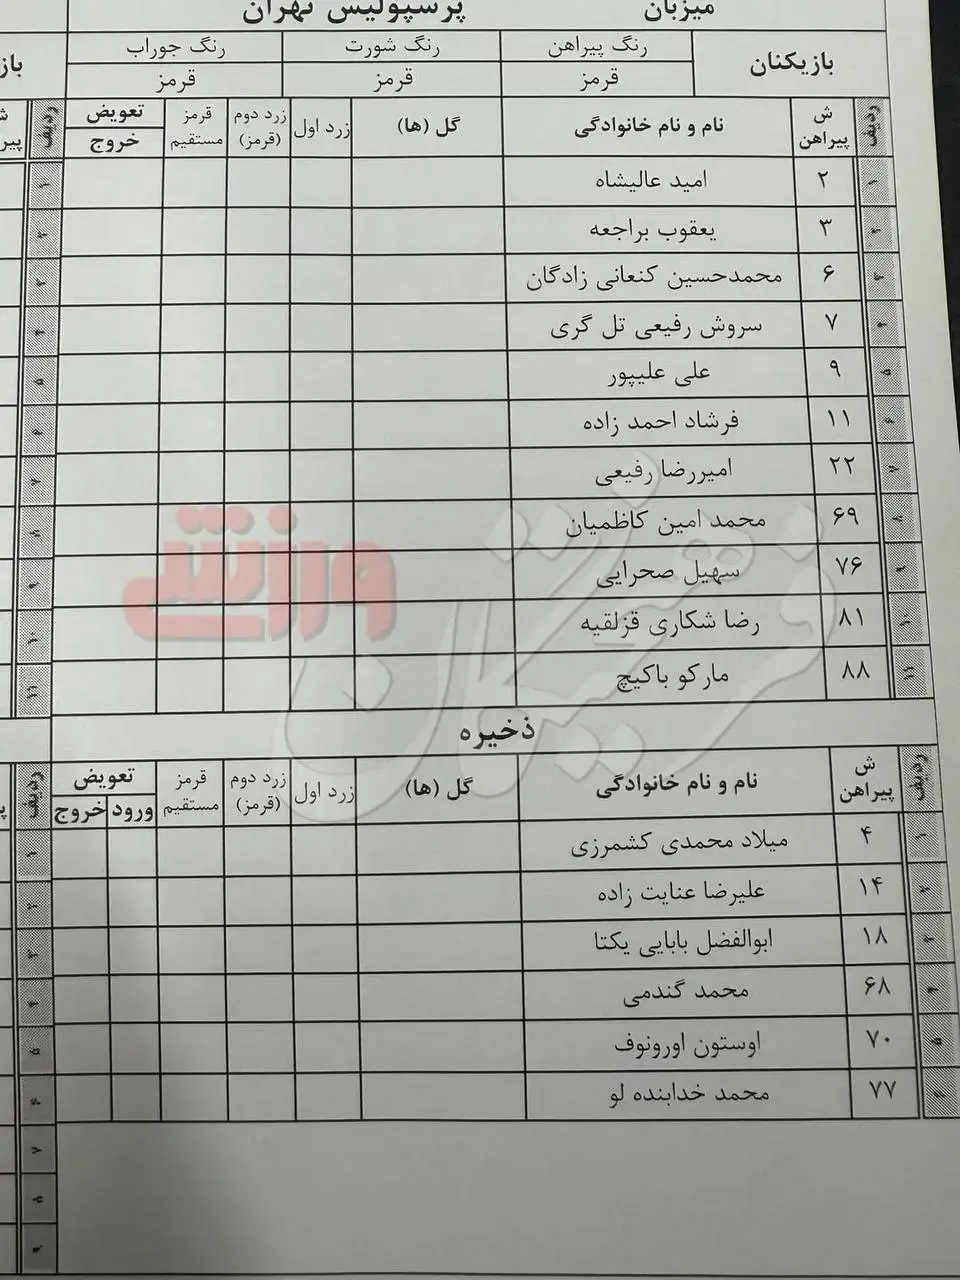 میزبان پرسپولیس تهران
بازیکنان رنگ پیراهن رنگ شورت رنگ جوراب
قرمز قرمز قرمز
ردیف ش پیراهن نام و نام خانوادگی گل (ها) زرد اول زرد دوم (قرمز) قرمز مستقیم تعویض خروج ردیف
۱ ۲ امید عالیشاه ۱
۲ ۳ یعقوب براجعه ۲
۳ ۶ محمدحسین کنعانی زادگان ۳
۴ ۷ سروش رفیعی تل گری ۴
۵ ۹ علی علیپور ۵
۶ ۱۱ فرشاد احمد زاده ۶
۷ ۲۲ امیررضا رفیعی ۷
۸ ۶۹ محمد امین کاظمیان ۸
۹ ۷۶ سهیل صحرایی ۹
۱۰ ۸۱ رضا شکاری قزلقیه ۱۰
۱۱ ۸۸ مارکو باکیچ ۱۱
ذخیره
ردیف ش پیراهن نام و نام خانوادگی گل (ها) زرد اول زرد دوم (قرمز) قرمز مستقیم تعویض ورود خروج ردیف
۱ ۴ میلاد محمدی کشمرزی ۱
۲ ۱۴ علیرضا عنایت زاده ۲
۳ ۱۸ ابوالفضل بابایی یکتا ۳
۴ ۶۸ محمد گندمی ۴
۵ ۷۰ اوستون اورونوف ۵
۶ ۷۷ محمد خدابنده لو ۶
۷
۸
۹
فرهیختگان ورزشی